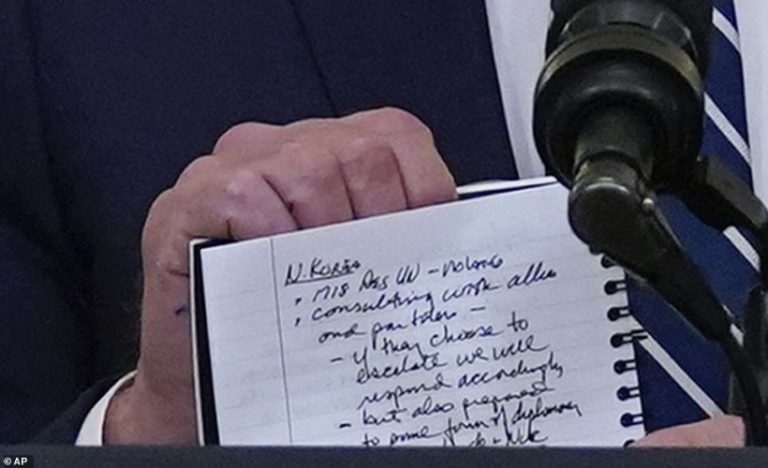 N. KOREA
• 718 Res UN - violated
• consulting with allies
and partners -
- if they choose to
escalate we will
respond accordingly
- but also prepared
to some form of diplomacy
© AP